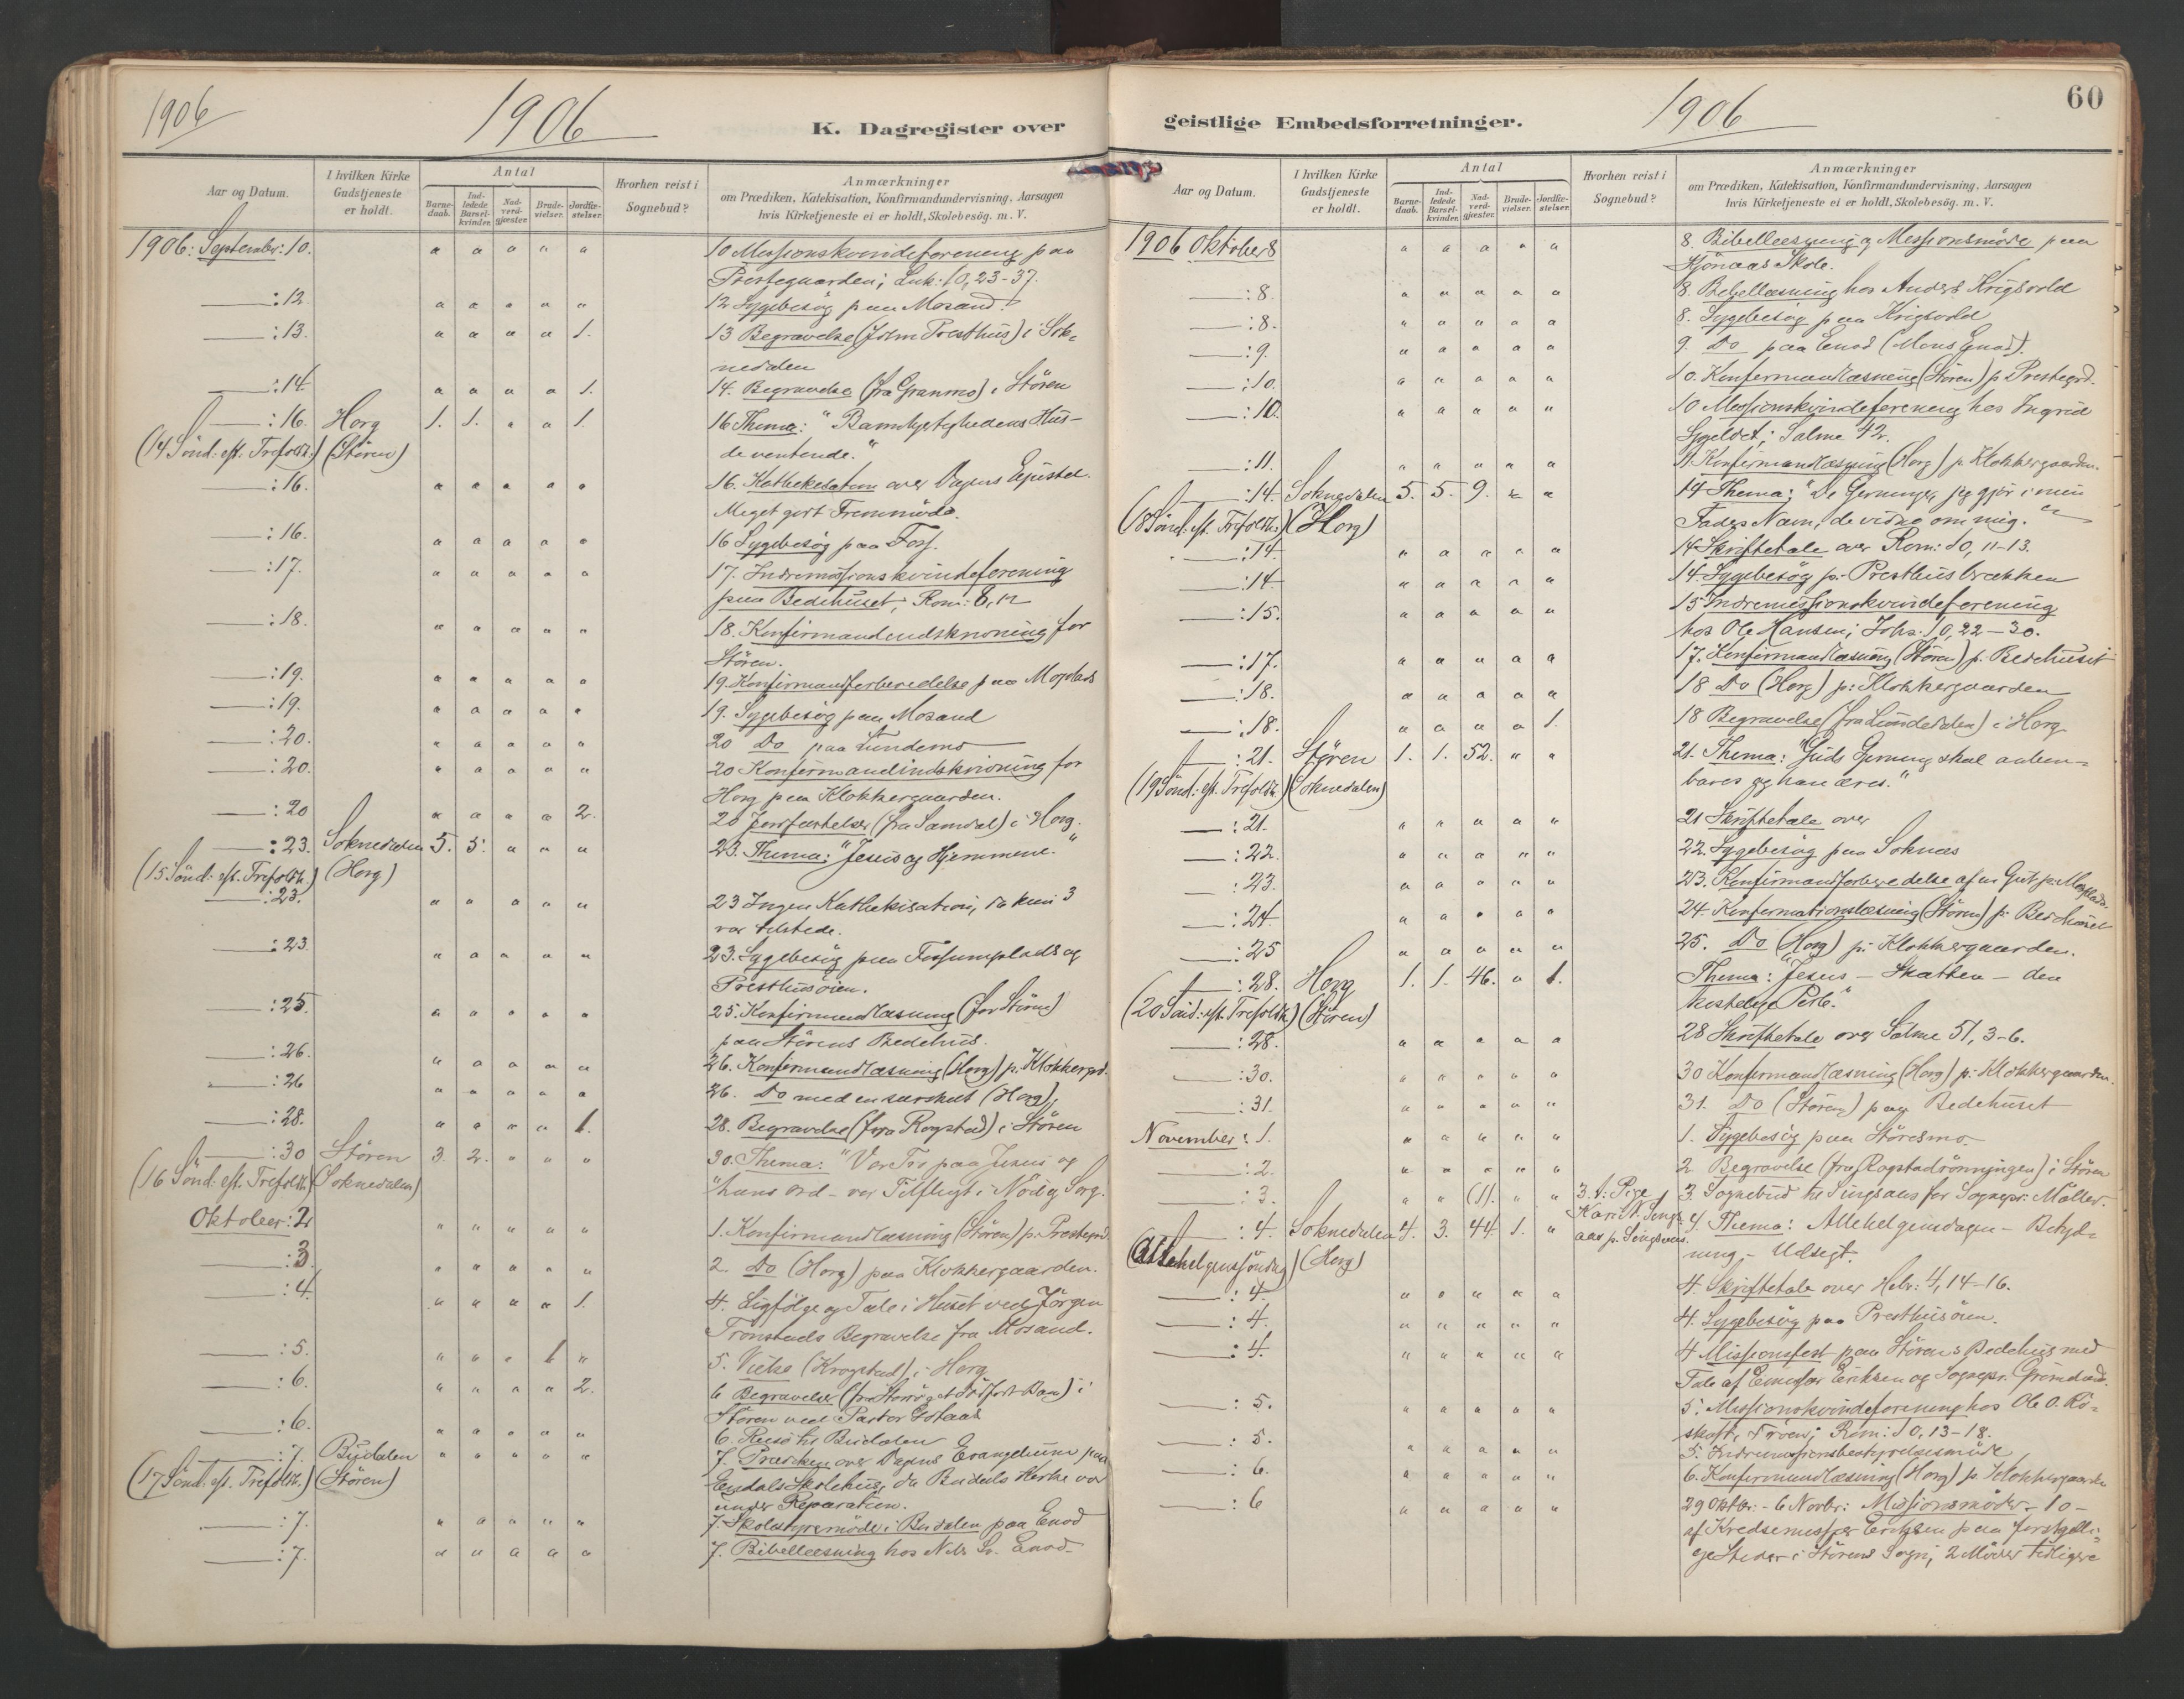 1906
1906
K. Dagregister over
Aar og Datum.
I hvilken Kirke Gudstjeneste er holdt.
Antal
Barne-daab.
Ind-ledede Barsel-kvinder.
Nad-verd-gjæster.
Brude-vielser.
Jordfæ-stelser.
Hvorhen reist i Sognebud?
Anmærkninger
om Prædiken, Katekisation, Konfirmandundervisning, Aarsagen
hvis Kirketjeneste ei er holdt, Skolebesøg. m. V.
1906: September: 10. " " " " " 10 Missionskvindeforening paa
Prestegaarden; Luk: 10, 23-37.
: 12. " " " " " 12 Sygebesøg paa Mosand
: 13. " " " " 1. 13 Begravelse (fra Presthus) i Sok-
nedalen
: 14. " " " " 1. 14. Begravelse (fra Granmo) i Støren
: 16. Horg 1. 1. " " 1. 16 Thema: "Barmhjertighedens Hus-
(14 Sönd: eft. Trefoldh:) (Støren) de ventende."
: 16. " " " " " 16. Kathekesation over Dagens Epistel.
Meget godt Fremmøde.
: 16. " " " " " 16 Sygebesøg paa Foss.
: 17. " " " " " 17. Indremissionskvindeforening
paa Bedehuset, Rom: 8, 12
: 18. " " " " " 18. Konfirmandindskrivning for
Støren.
: 19. " " " " " 19. Konfirmandforberedelse paa Moplads
: 19. " " " " " 19. Sygebesøg paa Mosand
: 20. " " " " " 20 Do paa Lundemo
: 20. " " " " " 20 Konfirmandindskrivning for
Horg paa Klokkergaarden.
: 20 " " " " 2. 20 Jordfæstelser (fra Samdal) i Horg.
: 23. Soknedalen 5. 5. " " " 23. Thema: "Jesus og Hjemmene."
(15 Sönd: eft. Trefoldh.) (Horg)
: 23. " " " " " 23 Ingen Kathekisation, da kun 3
var tilstede.
: 23. " " " " " 23. Sygebesøg paa Fossumplads og
Presthusøien.
: 25. " " " " " 25. Konfirmandlæsning (for Støren)
paa Størens Bedehus.
: 26. " " " " " 26. Konfirmandlæsning (Horg) p. Klokkergrd.
: 26 " " " " " 26. Do med en særskilt (Horg).
: 28. " " " " 1. 28. Begravelse (fra Rogstad) i Støren
: 30 Støren 3. 2. " " " 30. Thema: "Vor Tro paa Jesus og
(16 Sönd: eft. Trefoldh.) (Soknedalen) "hans Ord – vor Tilflugt i Nød og Sorg.
Oktober: 2 " " " " " 1. Konfirmandlæsning (Støren) p. Prestegrd.
: 3. " " " " " 2. Do (Horg) paa Klokkergaarden.
: 4. " " " " 1. 4. Ligfølge og Tale i Huset ved Jørgen
Tronstads Begravelse fra Mosand.
: 5. " " " 1 " 5. Vielse (Krogstad) i Horg
: 6. " " " " 2. 6 Begravelser i
Støren ved Pastor
: 6. " " " " " 6. Reise til Budalen
: 7. Budalen " " " " " 7. Prædiken over Dagens Evangelium paa
(17 Sönd: eft. Trefoldh.) (Støren) Endals Skolehus, da Budals Kirke var
under Reparation.
: 7. " " " " " 7. Skolestyremøde i Budalen paa Enod
: 7. " " " " " 7. Bibellæsning hos Nils Enod.
geistlige Embedsforretninger.
1906
60
Aar og Datum.
I hvilken Kirke Gudstjeneste er holdt.
Antal
Barne-daab.
Ind-ledede Barsel-kvinder.
Nad-verd-gjæster.
Brude-vielser.
Jordfæ-stelser.
Hvorhen reist i Sognebud?
Anmærkninger
om Prædiken, Katekisation, Konfirmandundervisning, Aarsagen
hvis Kirketjeneste ei er holdt, Skolebesøg. m. V.
1906 Oktober 8 " " " " " 8. Bibellæsning og Missionsmøde paa
Skole.
: 8. " " " " " 8. Bibellæsning hos Anders Krigsvold
: 8. " " " " " 8. Sygebesøg paa Krigsvold
: 9. " " " " " 9. Do paa Enod (Mons Enod).
: 10. " " " " " 10. Konfirmandlæsning (Støren) p. Prestegrd.
: 10. " " " " " 10 Missionskvindeforening hos Ingrid
Salme 42.
: 11. " " " " " 11. Konfirmandlæsning (Horg) p. Klokkergaarden.
: 14. Soknedalen 5. 5. 9. " " 14 Thema: "De Gerninger, jeg gjør i min
(18 Sönd: eft. Trefoldh.) (Horg) Faders Navn, de vidne om mig."
: 14. " " " " " 14. Skriftetale over Rom: 10, 11-13.
: 14 " " " " " 14. Sygebesøg p. Presthusbrækken
: 15. " " " " " 15 Indremissionskvindeforening
hos Ole Hansen; Johs: 10, 22-30.
: 17. " " " " " 17. Konfirmandlæsning (Støren) p. Bedehuset
: 18. " " " " " 18 Do (Horg) p: Klokkergaarden
: 18. " " " " 1. 18 Begravelse (fra Lundedalen) i Horg
: 21. Støren 1. 1. 52. " " 21. Thema: "Guds Gerning skal aaben-
(19 Sönd: eft. Trefoldh.) (Soknedalen) bares og han æres."
: 21. " " " " " 21 Skriftetale over
: 22. " " " " " 22. Sygebesøg paa Soknæs
: 23. " " " " " 23. Konfirmandforberedelse af en Gut p: Moplads.
: 24. " " " " " 24. Konfirmationslæsning (Støren) p: Bedehuset
: 25 " " " " " 25. Do (Horg) p: Klokkergaarden.
: 28. Horg 1. 1. 46. " 1. Thema: "Jesus – Skatten – den
(20 Sönd: eft. Trefoldh.) (Støren) kostelige Perle."
: 28. " " " " " 28 Skriftetale over Salme 51, 3-6.
: 30. " " " " " 30 Konfirmandlæsning (Horg) p: Klokkergaarden.
: 31. " " " " " 31. Do (Støren) paa Bedehuset
November: 1. " " " " " 1. Sygebesøg paa Støresmo
: 2. " " " " " 2 Begravelse (fra Rogstadrønningen) i Støren
: 3. " " (1). " " 3. 1: Pige 3. Sognebud til Singsaas for Sognepr: Møller.
Kari
: 4. Soknedalen 4. 3. 44. 1. " aas p. Singsaas. 4. Thema: Allehelgensdagen – Betyd-
(Allehelgenssøndag) (Horg) ning. – Udsigt.
: 4. " " " " " 4. Skriftetale over Hebr: 4, 14-16.
: 4. " " " " " 4. Sygebesøg paa Presthusøien.
: 4. " " " " " 4 Missionsfest paa Størens Bedehus med
Tale af Eriksen og Sognepr.
: 5. " " " " " 5. Missionskvindeforening hos Ole O. Rø-
skaft, Rom: 10, 13-18.
: 5. " " " " " 5. Indremissionsbestyrelsesmøde
: 6. " " " " " 6. Konfirmandlæsning (Horg) p. Klokkergaarden
: 6 " " " " " 29 Oktbr. – 6 Novbr: Missionsmøder – 10 –
af Kredsemissær Eriksen paa forskjelli-
ge Steder i Størens Sogn; 2 Møder tidligere